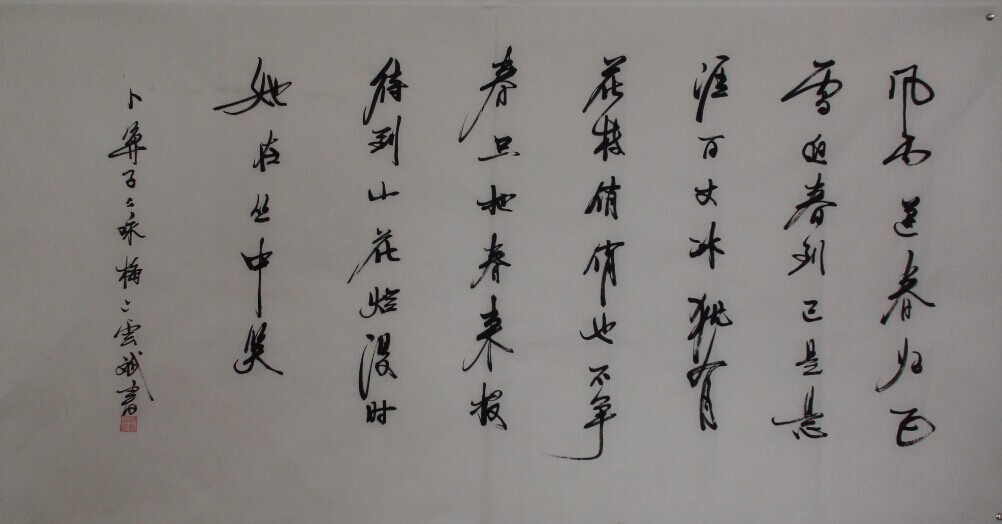 风雨送春归飞
雪迎春到已是悬
涯百丈冰犹有
花枝俏俏也不争
春只把春来报
待到山花烂漫时
她在丛中笑
卜算子咏梅雲斌書